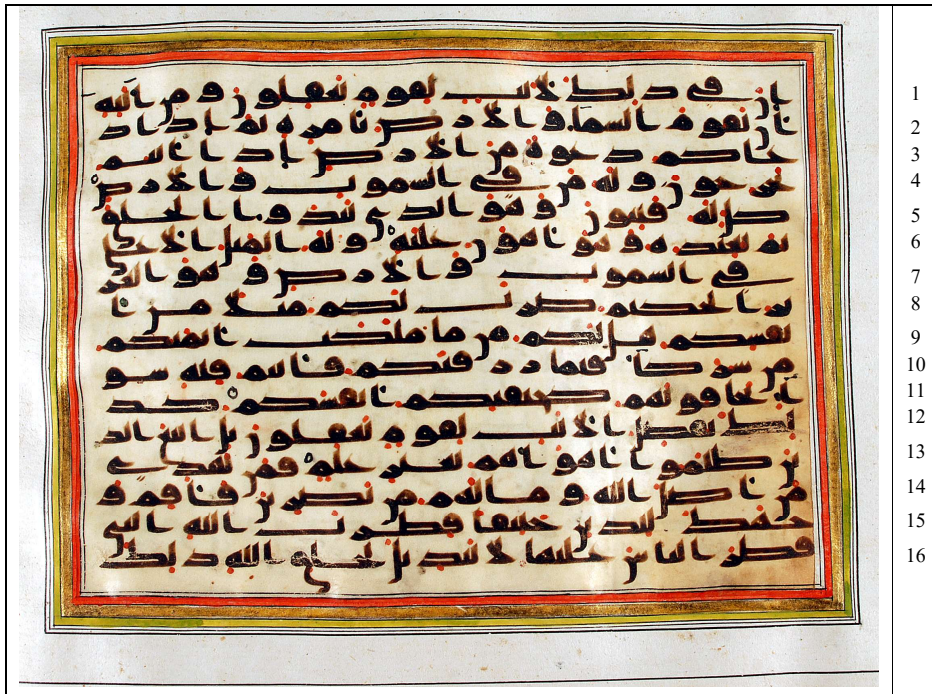 1 ان في ذلك لايت لقوم يعقلون ومن ايته
2 ان تقوم السما والارض بامره ثم اذا د
3 عاكم دعوة من الارض اذا انتم
4 تخرجون وله من في السموت والارض
5 كل له قنتون وهو الذي يبدوا الخلق
6 ثم يعيده وهو اهون عليه وله المثل الاعلى
7 في السموت والارض وهو العز
8 يز الحكيم ضرب لكم مثلا من ا
9 نفسكم هل لكم من ما ملكت ايمنكم
10 من شركا فيما رزقنكم فانتم فيه سو
11 ا تخافونهم كخيفتكم انفسكم كذ
12 لك نفصل الايت لقوم يعقلون بل اتبع الذ
13 ين ظلموا اهواهم بغير علم فمن يهدي
14 من اضل الله وما لهم من نصرين فاقم و
15 جهك للدين حنيفا فطرت الله التي
16 فطر الناس عليها لا تبديل لخلق الله ذلك